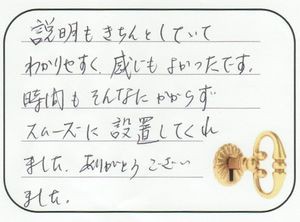 説明もきちんとしていて
わかりやすく、感じもよかったです。
時間もそんなにかからず
スムーズに設置してくれ
ました。ありがとうござい
ました。